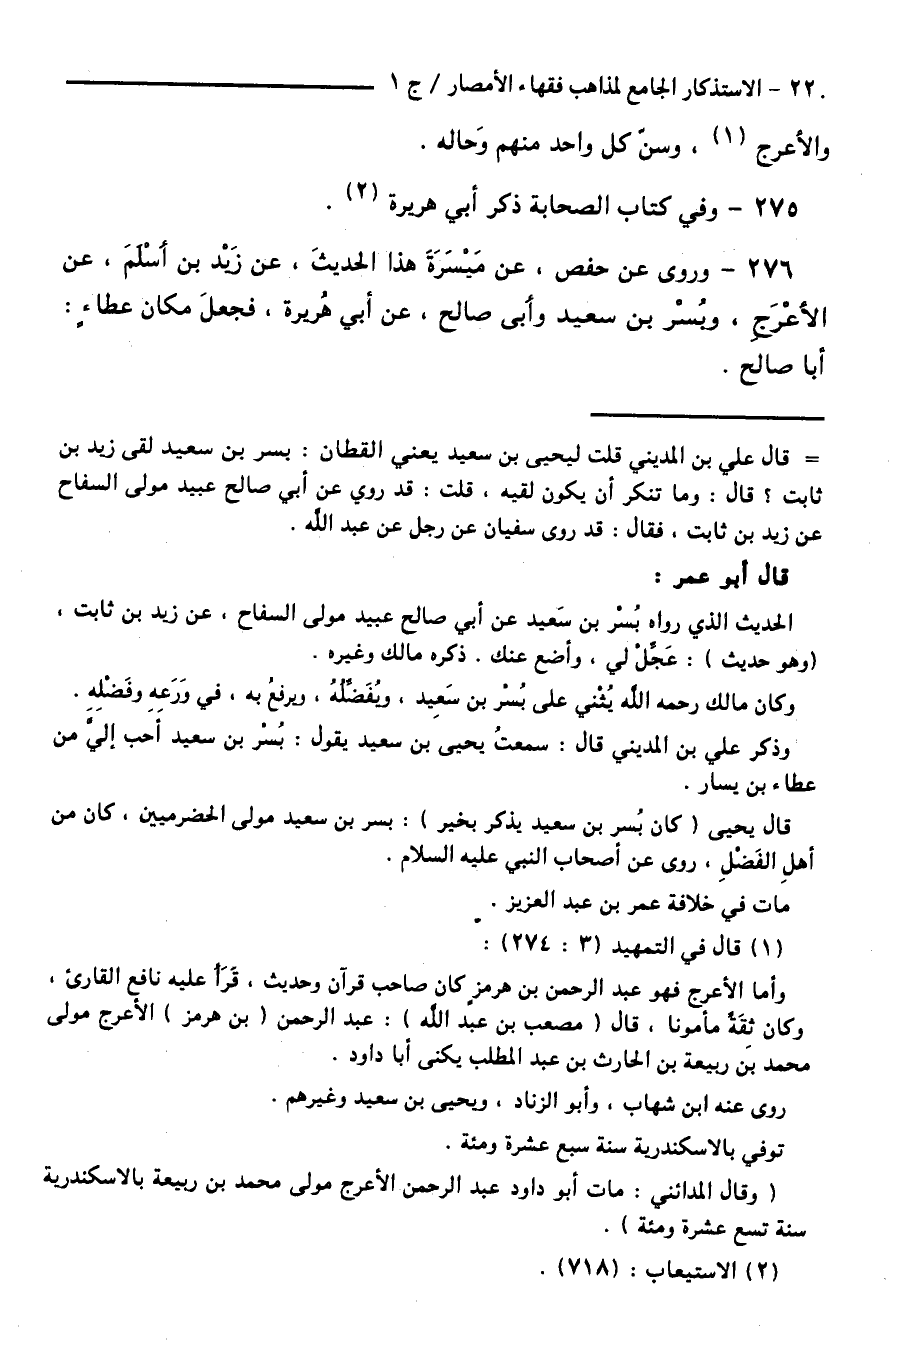 ٢٢٠ - الاستذكار الجامع لمذاهب فقهاء الأمصار / ج ١
والأعرج (١) ، وسنّ كل واحد منهم وَحاله .
٢٧٥ - وفي كتاب الصحابة ذكر أبي هريرة (٢) .
٢٧٦ - وروى عن حفص ، عن مَيْسَرَةَ هذا الحديثَ ، عن زَيْد بن أسْلَمَ ، عن
الأعْرَجِ ، وبُسْر بن سعيد وأبى صالح ، عن أبي هُريرة ، فجعلَ مكان عطاءٍ :
أبا صالح .
= قال علي بن المديني قلت ليحيى بن سعيد يعني القطان : بسر بن سعيد لقى زيد بن
ثابت ؟ قال : وما تنكر أن يكون لقيه ، قلت : قد روي عن أبي صالح عبيد مولى السفاح
عن زيد بن ثابت ، فقال : قد روى سفيان عن رجل عن عبد الله .
قال أبو عمر :
الحديث الذي رواه بُسْر بن سَعيد عن أبي صالح عبيد مولى السفاح ، عن زيد بن ثابت ،
(وهو حديث ) : عَجِّلْ لي ، وأضع عنك . ذكره مالك وغيره .
وكان مالك رحمه الله يُثْني على بُسْر بن سَعِيد ، ويُفَضِّلُهُ ، ويرفعُ به ، في وَرَعِهِ وفَضْلِهِ .
وذكر علي بن المديني قال : سمعتُ يحيى بن سعيد يقول : بُسْر بن سعيد أحب إليَّ من
عطاء بن يسار .
قال يحيى ( كان بُسر بن سعيد يذكر بخير ) : بسر بن سعيد مولى الحضرميين ، كان من
أهلِ الفَضْلِ ، روى عن أصحاب النبي عليه السلام .
مات في خلافة عمر بن عبد العزيز .
(١) قال في التمهيد (٣ : ٢٧٤) :
وأما الأعرج فهو عبد الرحمن بن هرمز كان صاحب قرآن وحديث ، قَرَأ عليه نافع القارئ ،
وكان ثِقَةً مأمونا ، قال ( مصعب بن عبد الله ) : عبد الرحمن ( بن هرمز ) الأعرج مولى
محمد بن ربيعة بن الحارث بن عبد المطلب يكنى أبا داود .
روى عنه ابن شهاب ، وأبو الزناد ، ويحيى بن سعيد وغيرهم .
توفي بالاسكندرية سنة سبع عشرة ومئة .
( وقال المدائني : مات أبو داود عبد الرحمن الأعرج مولى محمد بن ربيعة بالاسكندرية
سنة تسع عشرة ومئة ) .
(٢) الاستيعاب : (٧١٨) .